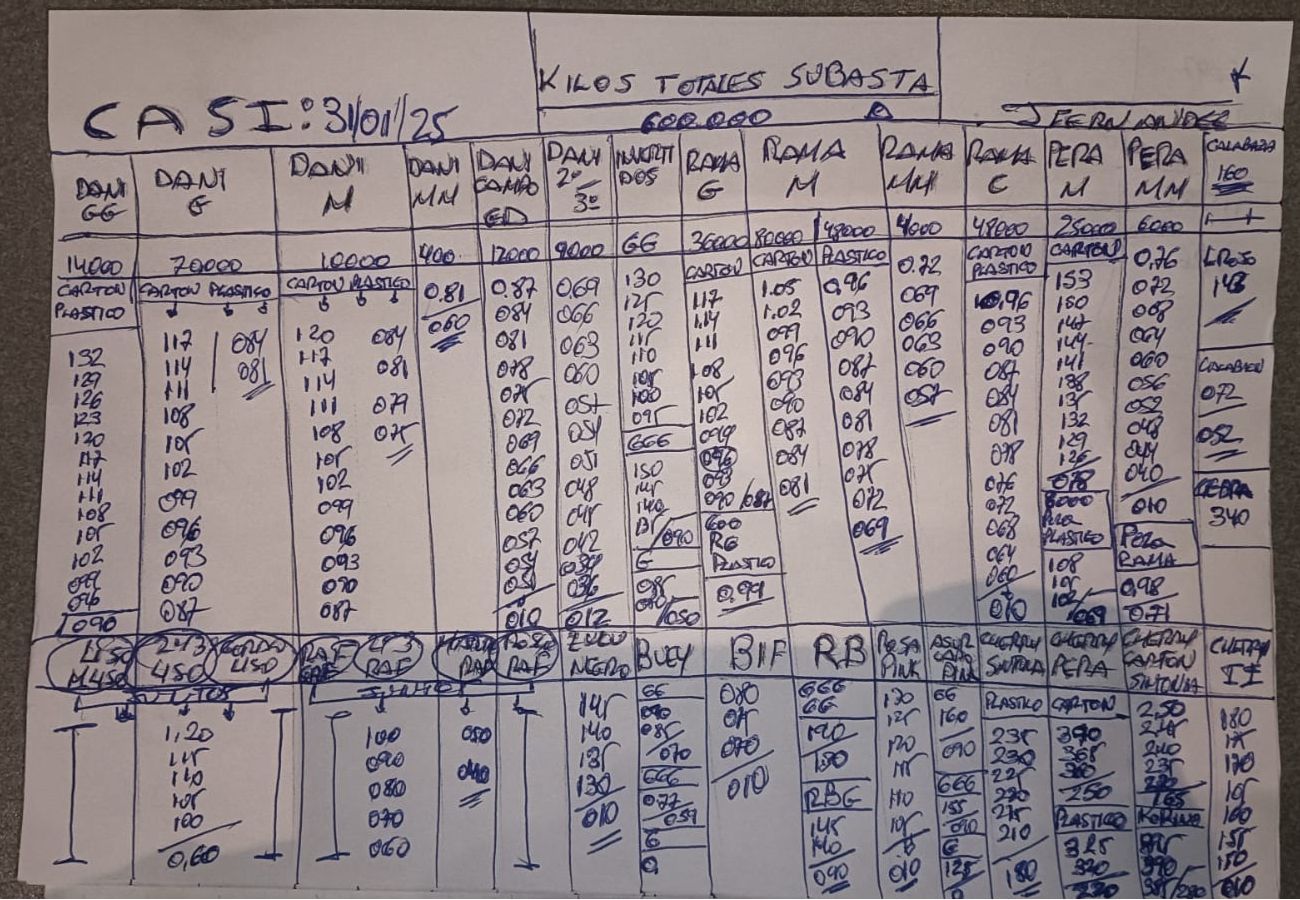 KILOS TOTALES SUBASTA
CASI: 31/01/25
600.000
J FERNANDEZ
DANI GG
DANI G
DANI M
DANI MM
DANI CAMPO
DANI 2º 3º
RAMA G
RAMA M
RAMA MM
RAMA C
PERA M
PERA MM
CALABAZA 160
14000
70000
10000
400
12000
9000
GG
36000
80000
48000
4000
48000
25000
6000
CARTON PLASTICO
CARTON PLASTICO
CARTON PLASTICO
0.81
0.87
0.69
130
CARTON
CARTON
PLASTICO
0.72
CARTON PLASTICO
CARTON
0,76
060
084
066
125
117
1.05
0.96
069
0.96
153
072
132
117
084
120
084
081
063
120
1.14
1.02
093
066
093
150
068
129
114
081
117
081
078
060
110
111
099
090
063
090
147
064
126
111
114
079
075
057
105
108
096
087
060
087
144
060
123
108
111
075
072
054
100
105
093
084
057
084
141
056
072
120
105
108
069
051
095
102
090
081
081
138
052
052
117
102
105
066
048
666
099
087
078
078
135
048
114
099
102
063
045
150
096
084
075
076
132
044
340
111
096
099
060
042
145
093
081
072
072
129
040
108
093
096
057
039
140
090/087
069
068
126
010
105
090
093
054
036
135/090
600 RG PLASTICO
064
078
102
087
090
051
012
G
0.99
060
6000 Pera PLASTICO
Pera RAMA
099
087
010
085
010
108
0,98
096
/050
105
0.71
090
102/069
LISO
2Y3 LISO
LISO
RAF
2Y3 RAF
RAF
RAF
NEGRO
BUEY
BIF
RB
ROSA PINK
PINK
CHERRY
CHERRY PERA
CHERRY CARTON
CHERRY
1,20
100
050
145
GG
080
666
GG
130
66
PLASTICO
CARTON
2,50
180
115
090
040
140
090
075
190
125
160
235
370
245
175
110
080
135
085
070
150
120
090
230
365
240
170
105
070
130
070
010
RBG
115
666
225
360
235
165
100
060
010
666
145
110
155
220
250
230
160
0,60
077
/059
140
105
090
215
PLASTICO
165
155
G
090
010
G
210
325
150
0
125
180
320
390
010
0
220